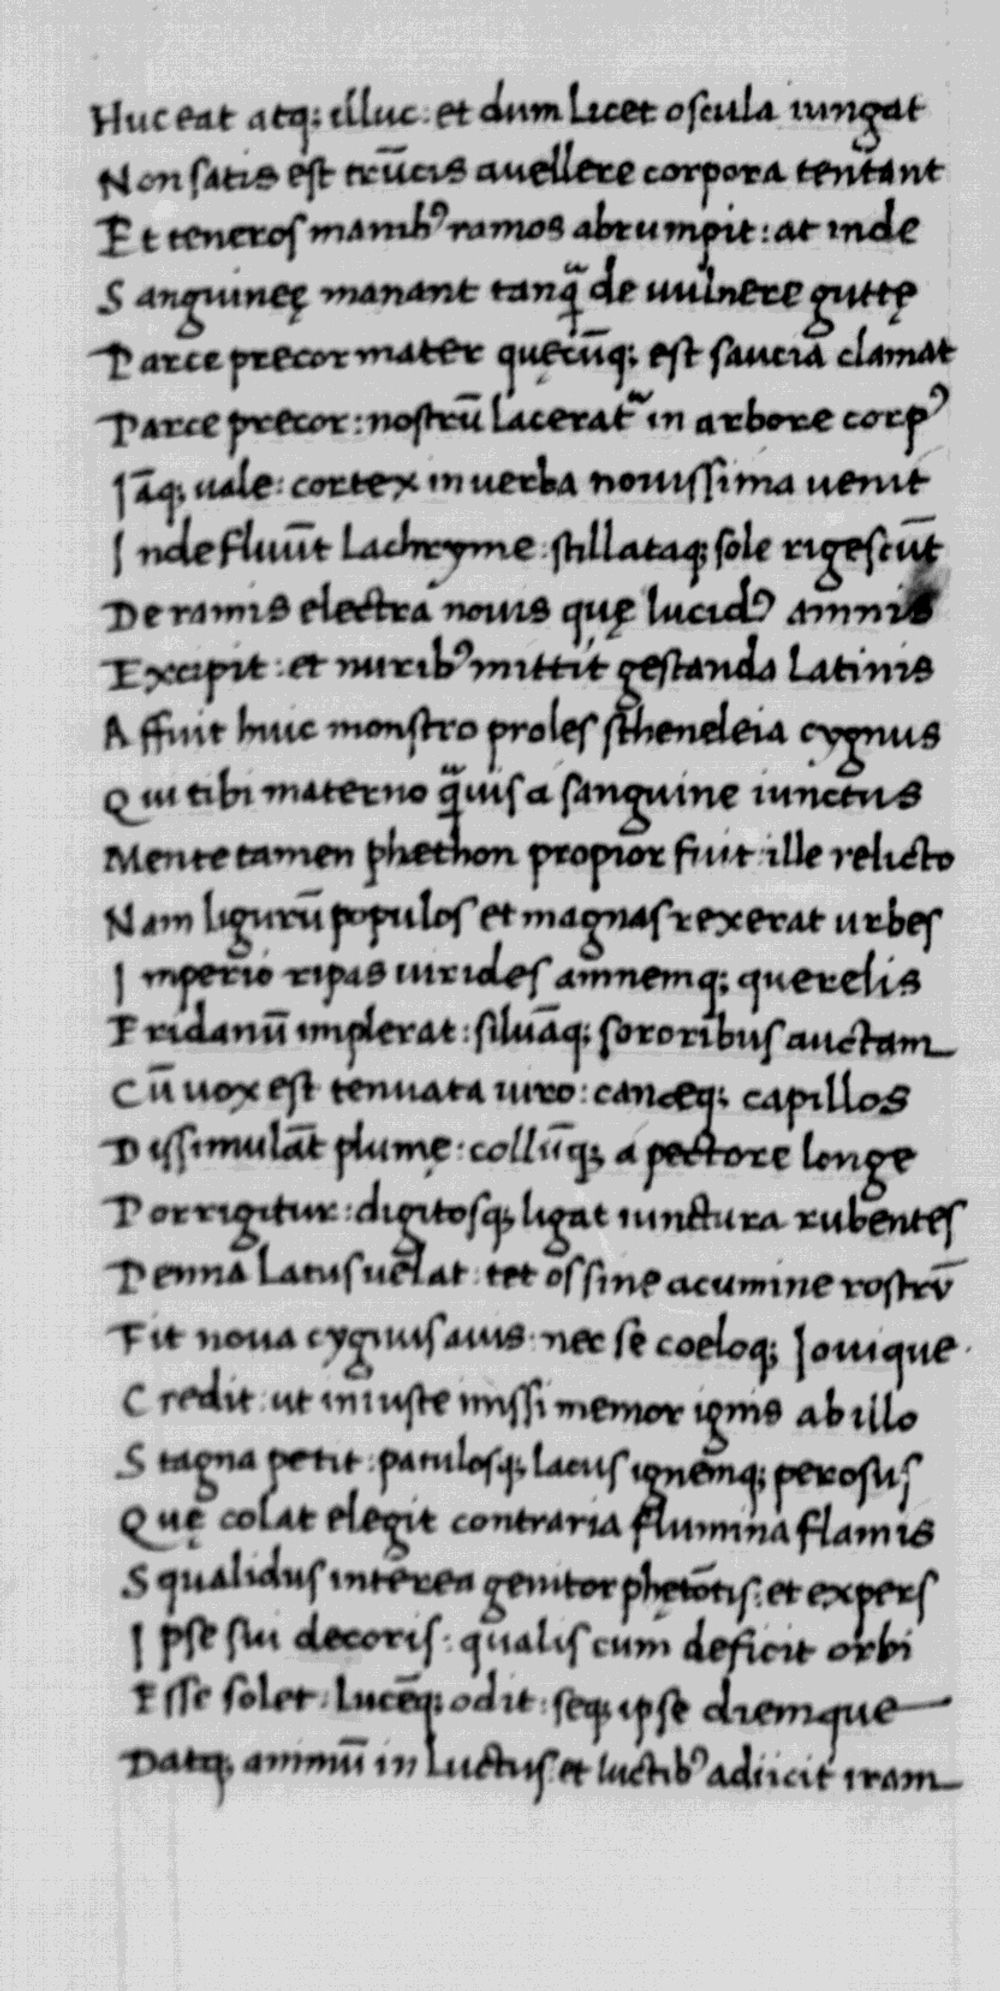 Huc eat atq; illuc: et dum licet oscula iungat
Non satis est trūcis auellere corpora tentant
Et teneros manibꝰ ramos abrumpit: at inde
Sanguineę manant tanqͣ de uulnere guttę
Parce precor mater quęcūq; est saucia clamat
Parce precor: nostrū laceratͬ in arbore corpꝰ
Iāq; uale: cortex in uerba nouissima uenit
Inde fluūt lachryme: stillataq; sole rigescūt
De ramis electra nouis quę lucidꝰ amnis
Excipit: et nuribꝰ mittit gestanda latinis
Affuit huic monstro proles stheneleia cygnus
Qui tibi materno qͣuis a sanguine iunctus
Mente tamen phethon propior fuit: ille relicto
Nam ligurū populos et magnas rexerat urbes
Imperio ripas uirides amnemq; querelis
Eridanū implerat: siluāq; sororibus auctam
Cū uox est tenuata uiro: canęq; capillos
Dissimulāt plumę: collūq; a pectore longe
Porrigitur: digitosq; ligat iunctura rubentes
Penna latus uelat: tet os sine acumine rostrū
Fit noua cygnus auis: nec se coeloq; Iouique
Credit: ut iniuste missi memor ignis ab illo
Stagna petit: patulosq; lacus ignemq; perosus
Quę colat elegit contraria flumina flamis
Squalidus interea genitor phetōtis: et expers
Ipse sui decoris: qualis cum deficit orbi
Esse solet: lucēq; odit: seq; ipse diemque
Datq; animū in luctus et luctibꝰ adiicit iram